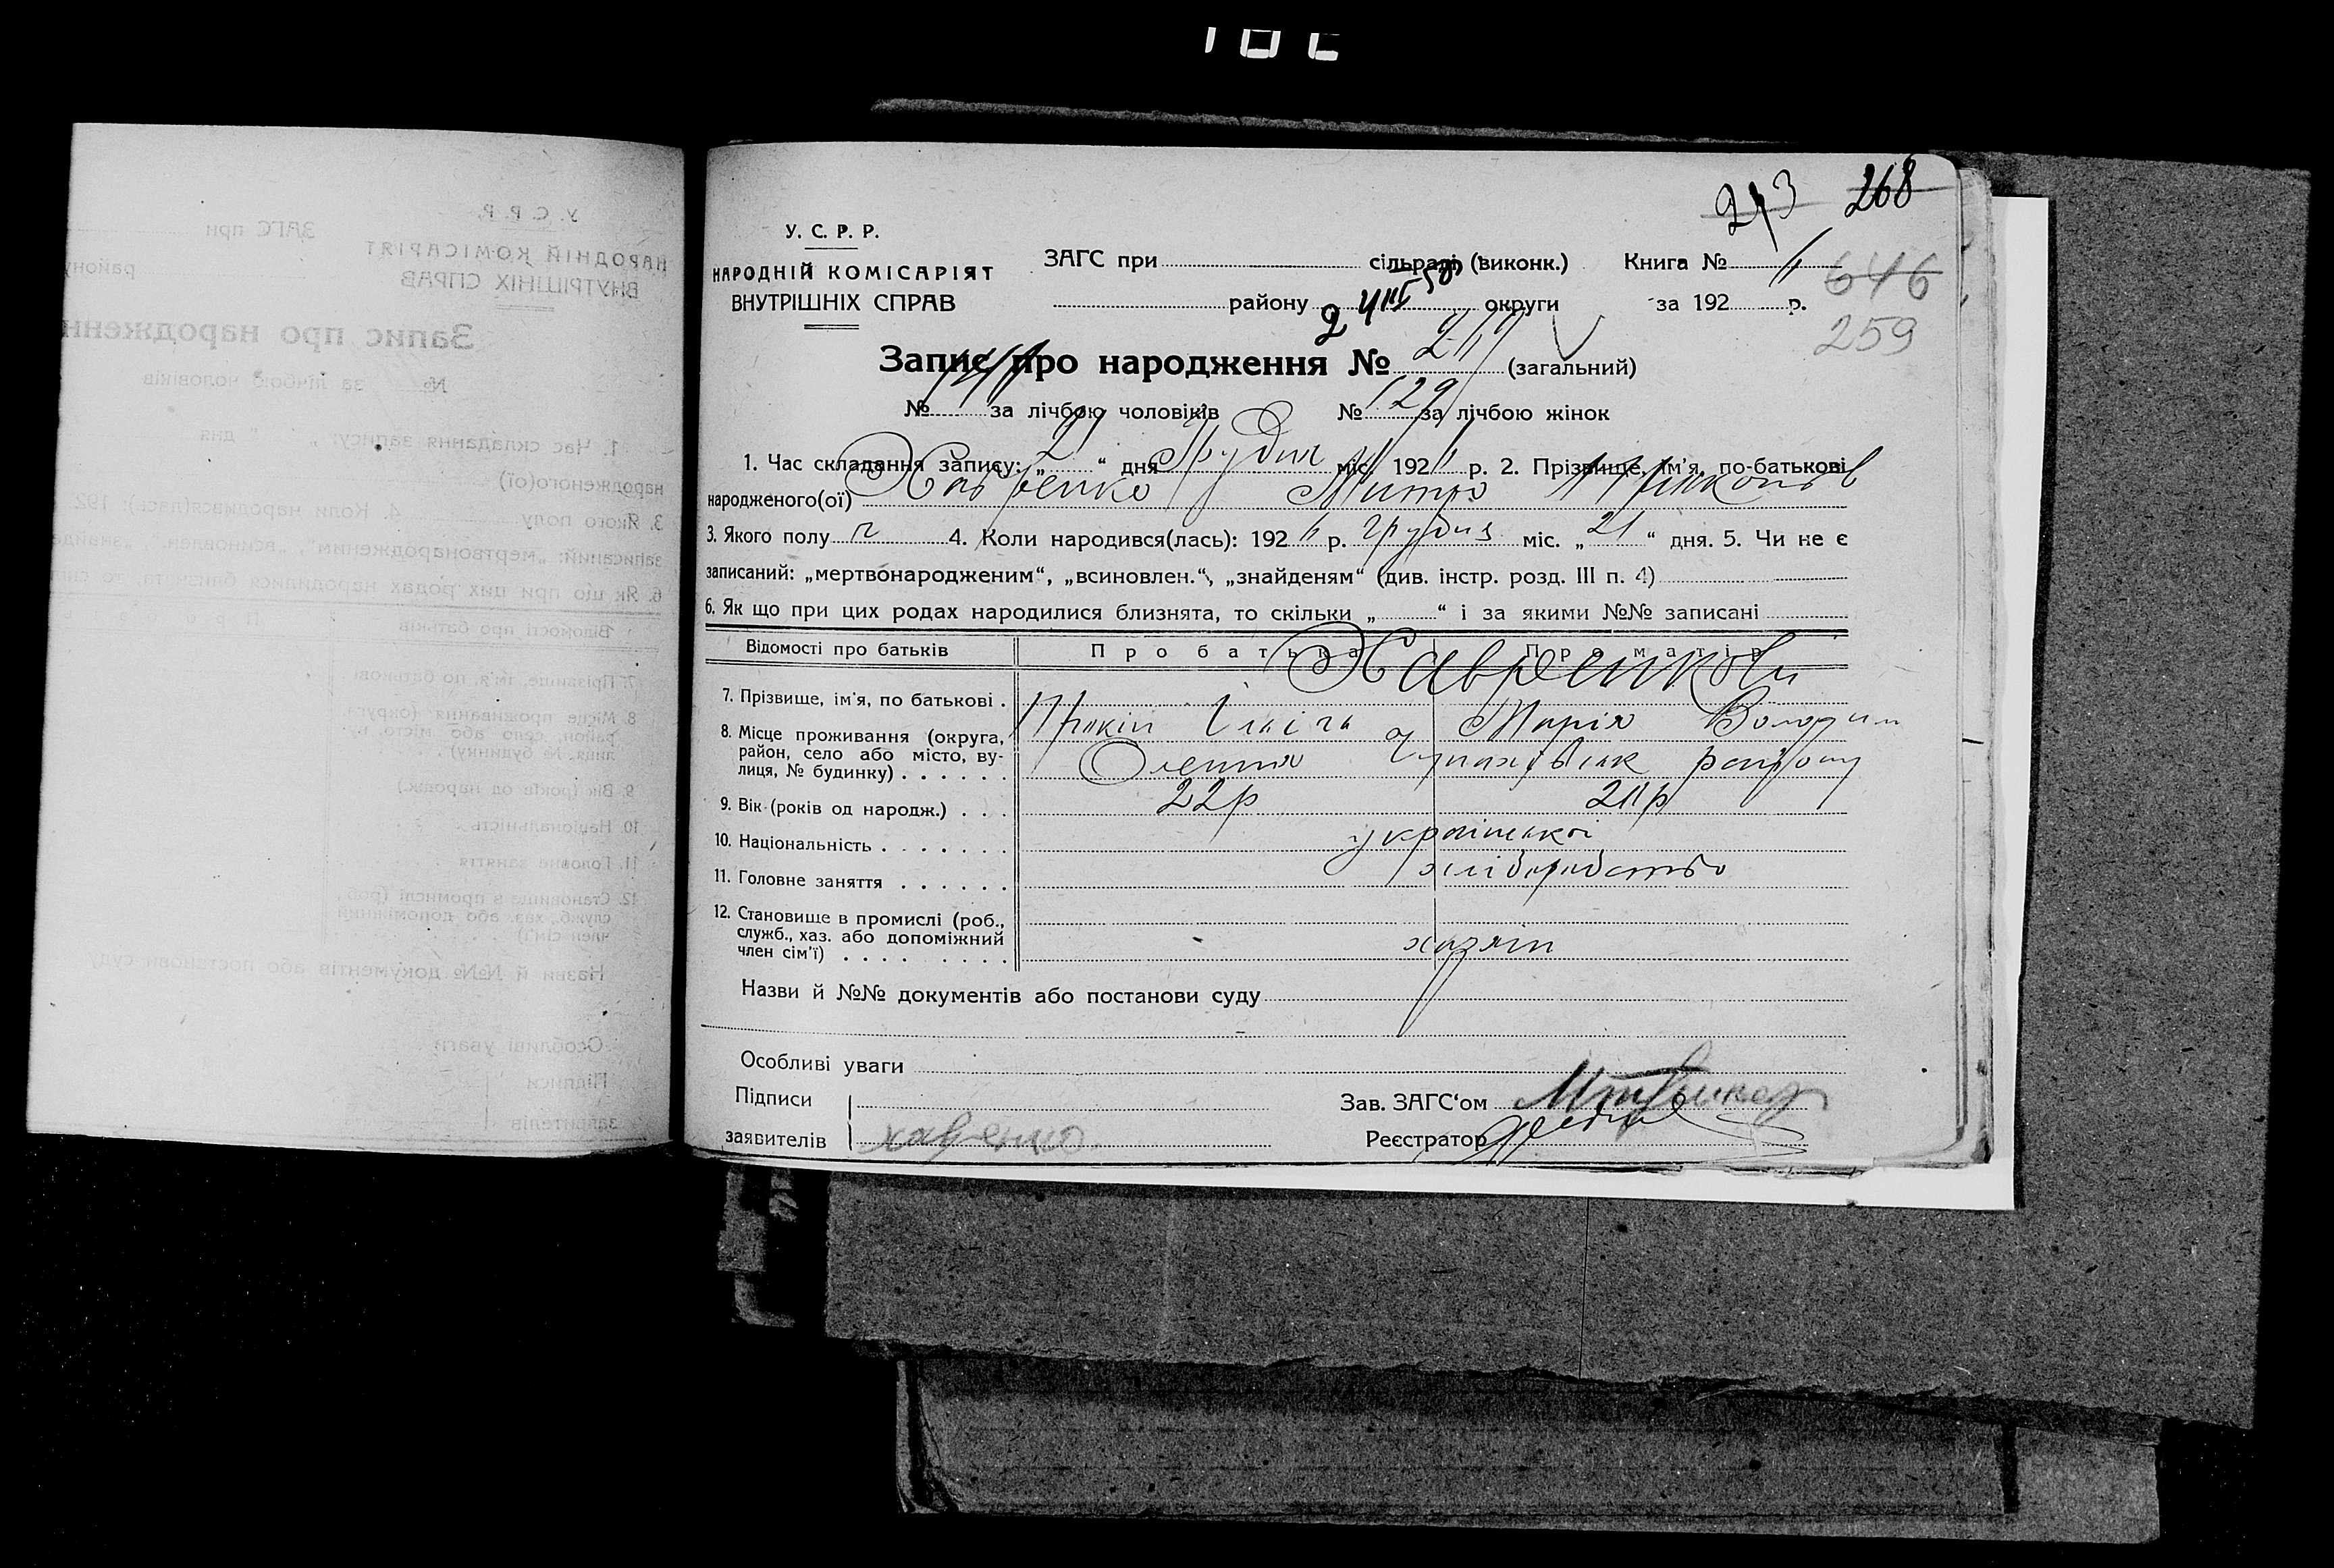 273 268
У. С. Р. Р.
НАРОДНІЙ КОМІСАРІЯТ
ВНУТРІШНІХ СПРАВ
ЗАГС при сільраді (виконк.) Книга №
646
району округи за 192 р.
259
Запис про народження № (загальний)
№ за лічбою чоловіків № 129 за лічбою жінок
1. Час складання запису: „ “ дня Грудня міс. 192 р. 2. Прізвище, ім'я, по-батькові
народженого(ої) Хавренко Митро
3. Якого полу ч 4. Коли народився(лась): 192 р. грудня міс. „21“ дня. 5. Чи не є
записаний: „мертвонародженим“, „всиновлен.“, „знайденям“ (див. інстр. розд. III п. 4)
6. Як що при цих родах народилися близнята, то скільки „ “ і за якими №№ записані
Відомості про батьків Про батька Про матір
Хавренкови
7. Прізвище, ім'я, по батькові .
Марія
8. Місце проживання (округа,
район, село або місто, ву-
лиця, № будинку) . . . . . .
району
9. Вік (років од народж.) . . . 22р
10. Національність . . . . . . . української
11. Головне заняття . . . . . . хліборобство
12. Становище в промислі (роб.,
служб., хаз. або допоміжний
член сім'ї) . . . . . . . . . хазяін
Назви й №№ документів або постанови суду
Особливі уваги
Підписи Зав. ЗАГС'ом
заявителів хавренко Реєстратор
У. С. Р. Р.
ЗАГС при
НАРОДНІЙ КОМІСАРІЯТ
району
ВНУТРІШНІХ СПРАВ
Запис про народженн
№ за лічбою чоловіків
1. Час складання запису: „ “ дня
народженого(ої)
3. Якого полу 4. Коли народився(лась): 192
записаний: „мертвонародженим“, „всиновлен.“, „знайде
6. Як що при цих родах народилися близнята, то скіл
Відомості про батьків
7. Прізвище, ім'я, по батькові .
8. Місце проживання (округа,
район, село або місто, ву-
лиця, № будинку) .
9. Вік (років од народж.)
10. Національність .
11. Головне заняття
12. Становище в промислі (роб.,
служб., хаз. або допоміжний
член сім'ї)
Назви й №№ документів або постанови суду
Особливі уваги
Підписи
заявителів